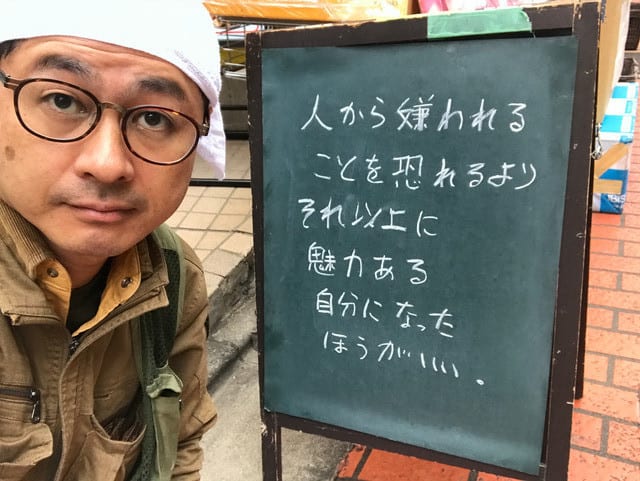 人から嫌われる
ことを恐れるより
それ以上に
魅力ある
自分になった
ほうがいい。